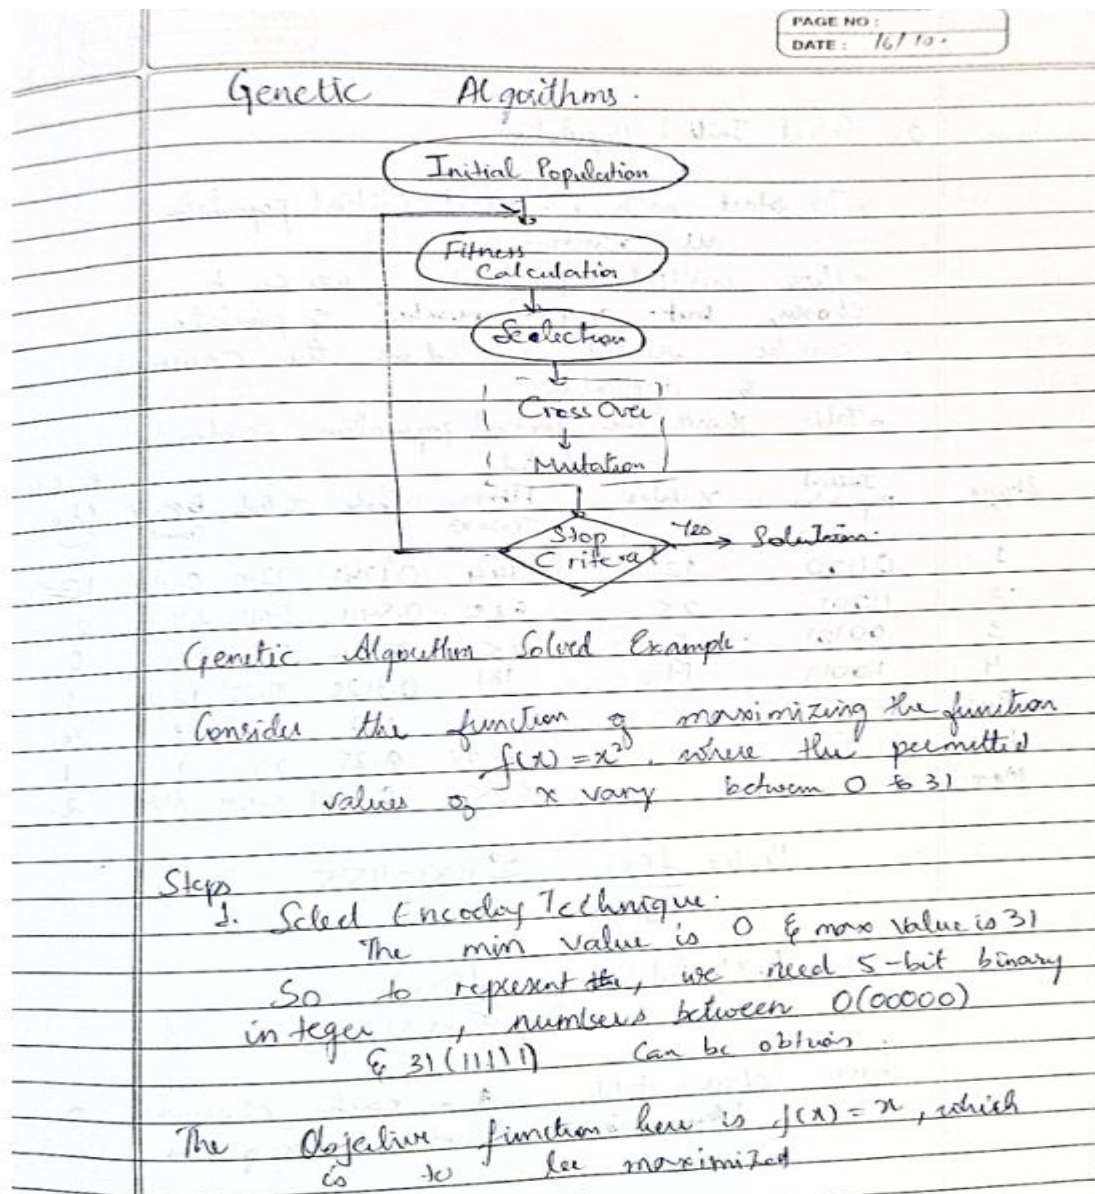 PAGE NO :
DATE : 16/10.
Genetic Algorithms.
Initial Population
Fitness
Calculation
Selection
Cross Over
Mutation
Stop
Criteria?
Yes
Solution.
Genetic Algorithm Solved Example.
Consider the function of maximizing the function
f(x) = x², where the permitted
values of x vary between 0 to 31
Steps
1. Select Encoding Technique.
The min value is 0 & max value is 31
So to represent the, we need 5-bit binary
integer, numbers between 0(00000)
& 31(11111) can be obtain.
The Objective function here is f(x) = x, which
is to be maximized